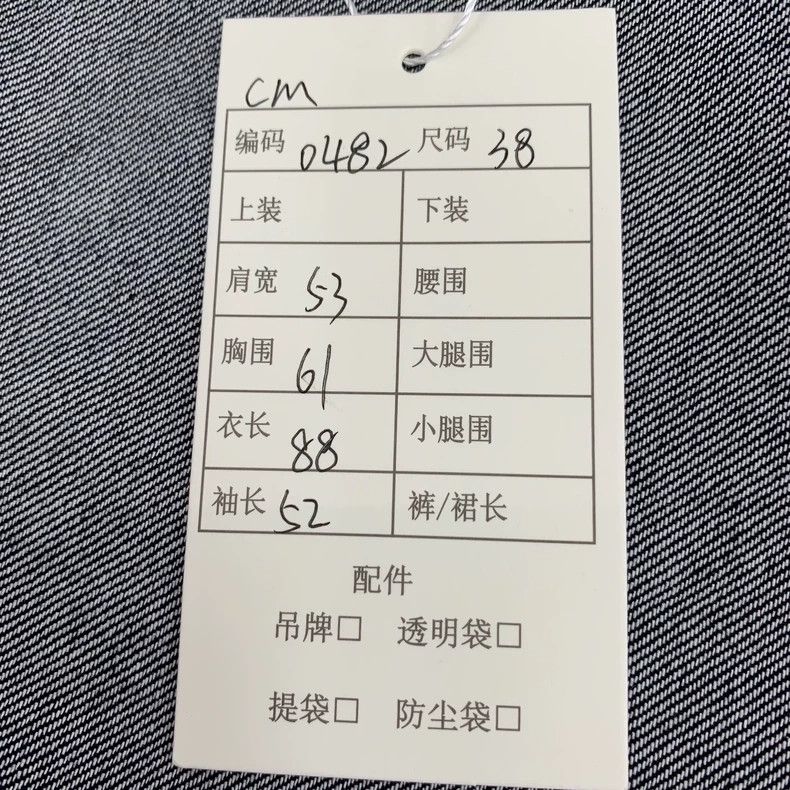 cm
编码 0482 尺码 38
上装 下装
肩宽 53 腰围
胸围 61 大腿围
衣长 88 小腿围
袖长 52 裤/裙长
配件
吊牌□ 透明袋□
提袋□ 防尘袋□